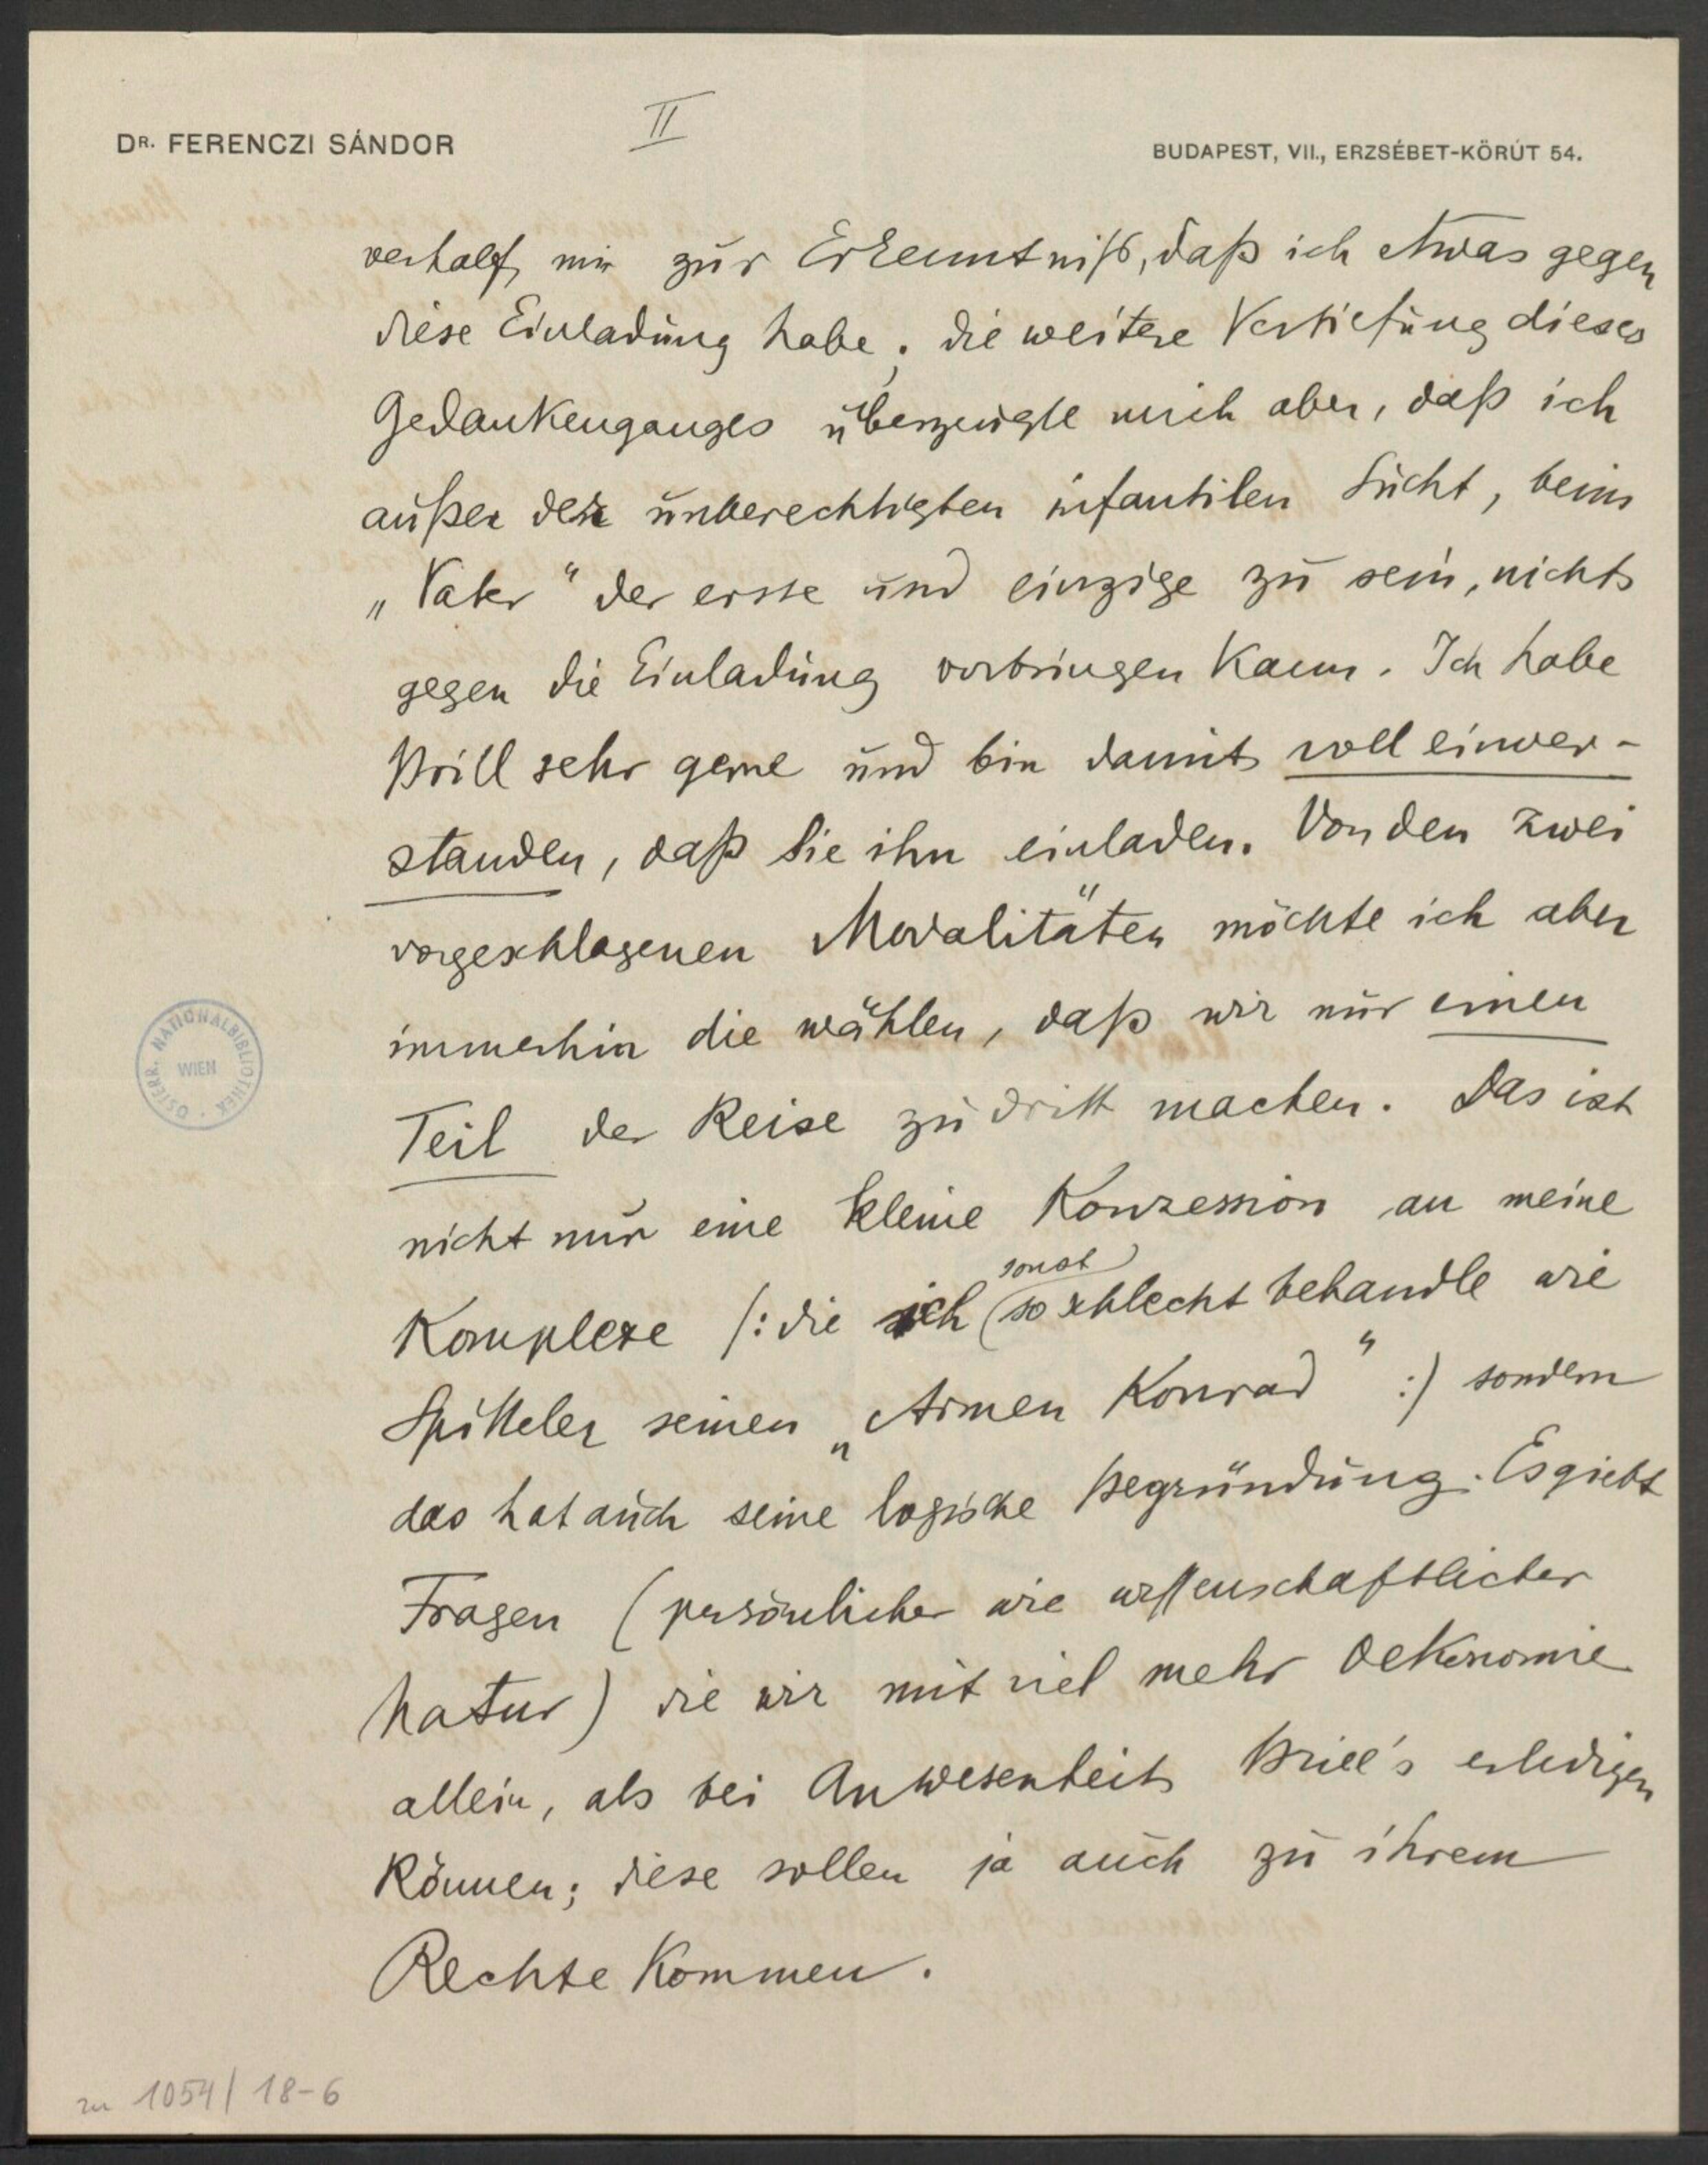 DR. FERENCZI SÁNDOR
II
BUDAPEST, VII., ERZSÉBET-KÖRÚT 54.
verhalf mir zur Erkenntniß, daß ich etwas gegen
diese Einladung habe; die weitere Vertiefung dieses
Gedankenganges überzeugte mich aber, daß ich
außer der unberechtigten infantilen Sucht, beim
„Vater“ der erste und einzige zu sein, nichts
gegen die Einladung vorbringen kann. Ich habe
Brill sehr gerne und bin damit voll einver-
standen, daß Sie ihn einladen. Von den zwei
vorgeschlagenen Modalitäten möchte ich aber
immerhin die wählen, daß wir nur einen
Teil der Reise zu dritt machen. Das ist
nicht nur eine kleine Konzession an meine
sonst
Komplexe /: die ich so schlecht behandle wie
Spitteler seinen „Armen Konrad“ :/ sondern
das hat auch seine logische Begründung. Es giebt
Fragen (persönlicher wie wissenschaftlicher
Natur) die wir mit viel mehr Oekonomie
allein, als bei Anwesenheit Brill's erledigen
können; diese sollen ja auch zu ihrem
Rechte kommen.
ÖSTERR. NATIONALBIBLIOTHEK
WIEN
zu 1054/18-6